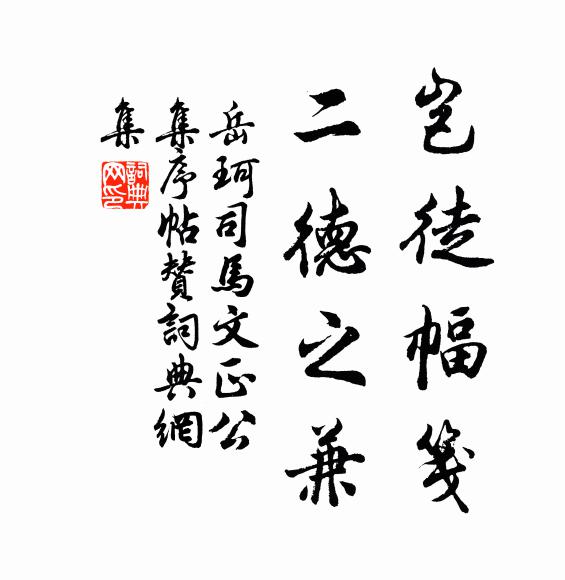 岂徒幅笺
二德之兼
岳珂司馬文正公
集序帖赞詞典網
集
詞典
网印